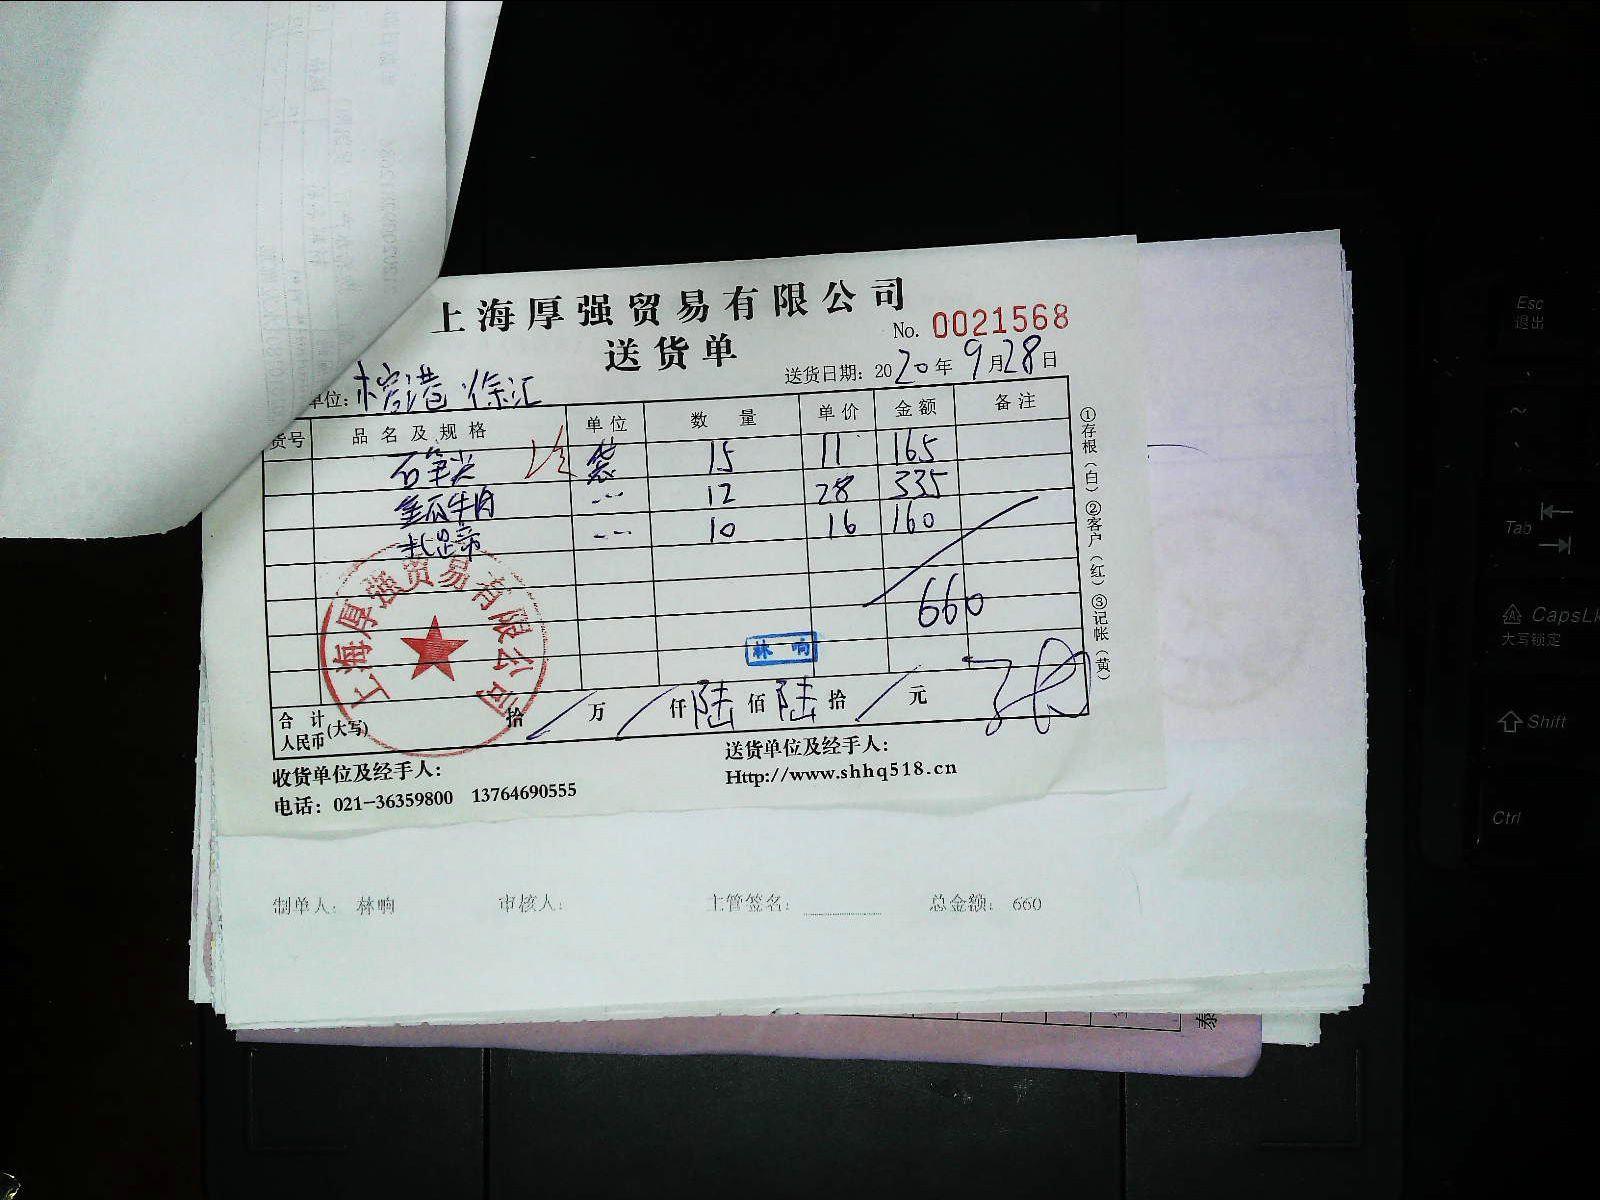 上海厚强贸易有限公司
送货单
No. 0021568
送货日期: 2020年9月28日
单位: 榕港 徐汇
货号 品名及规格 单位 数量 单价 金额 备注
袋 15 11 165
金瓜牛肉 12 28 335
10 16 160
660
林响
合计人民币(大写) 拾 / 万 / 仟 陆 佰 陆 拾 / 元
收货单位及经手人:
送货单位及经手人:
电话: 021-36359800 13764690555
Http://www.shhq518.cn
①存根(白) ②客户(红) ③记帐(黄)
上海厚强贸易有限公司
制单人: 林响 审核人: 主管签名: 总金额: 660
Esc
退出
~
Tab
CapsL
大写锁定
Shift
Ctrl
泰